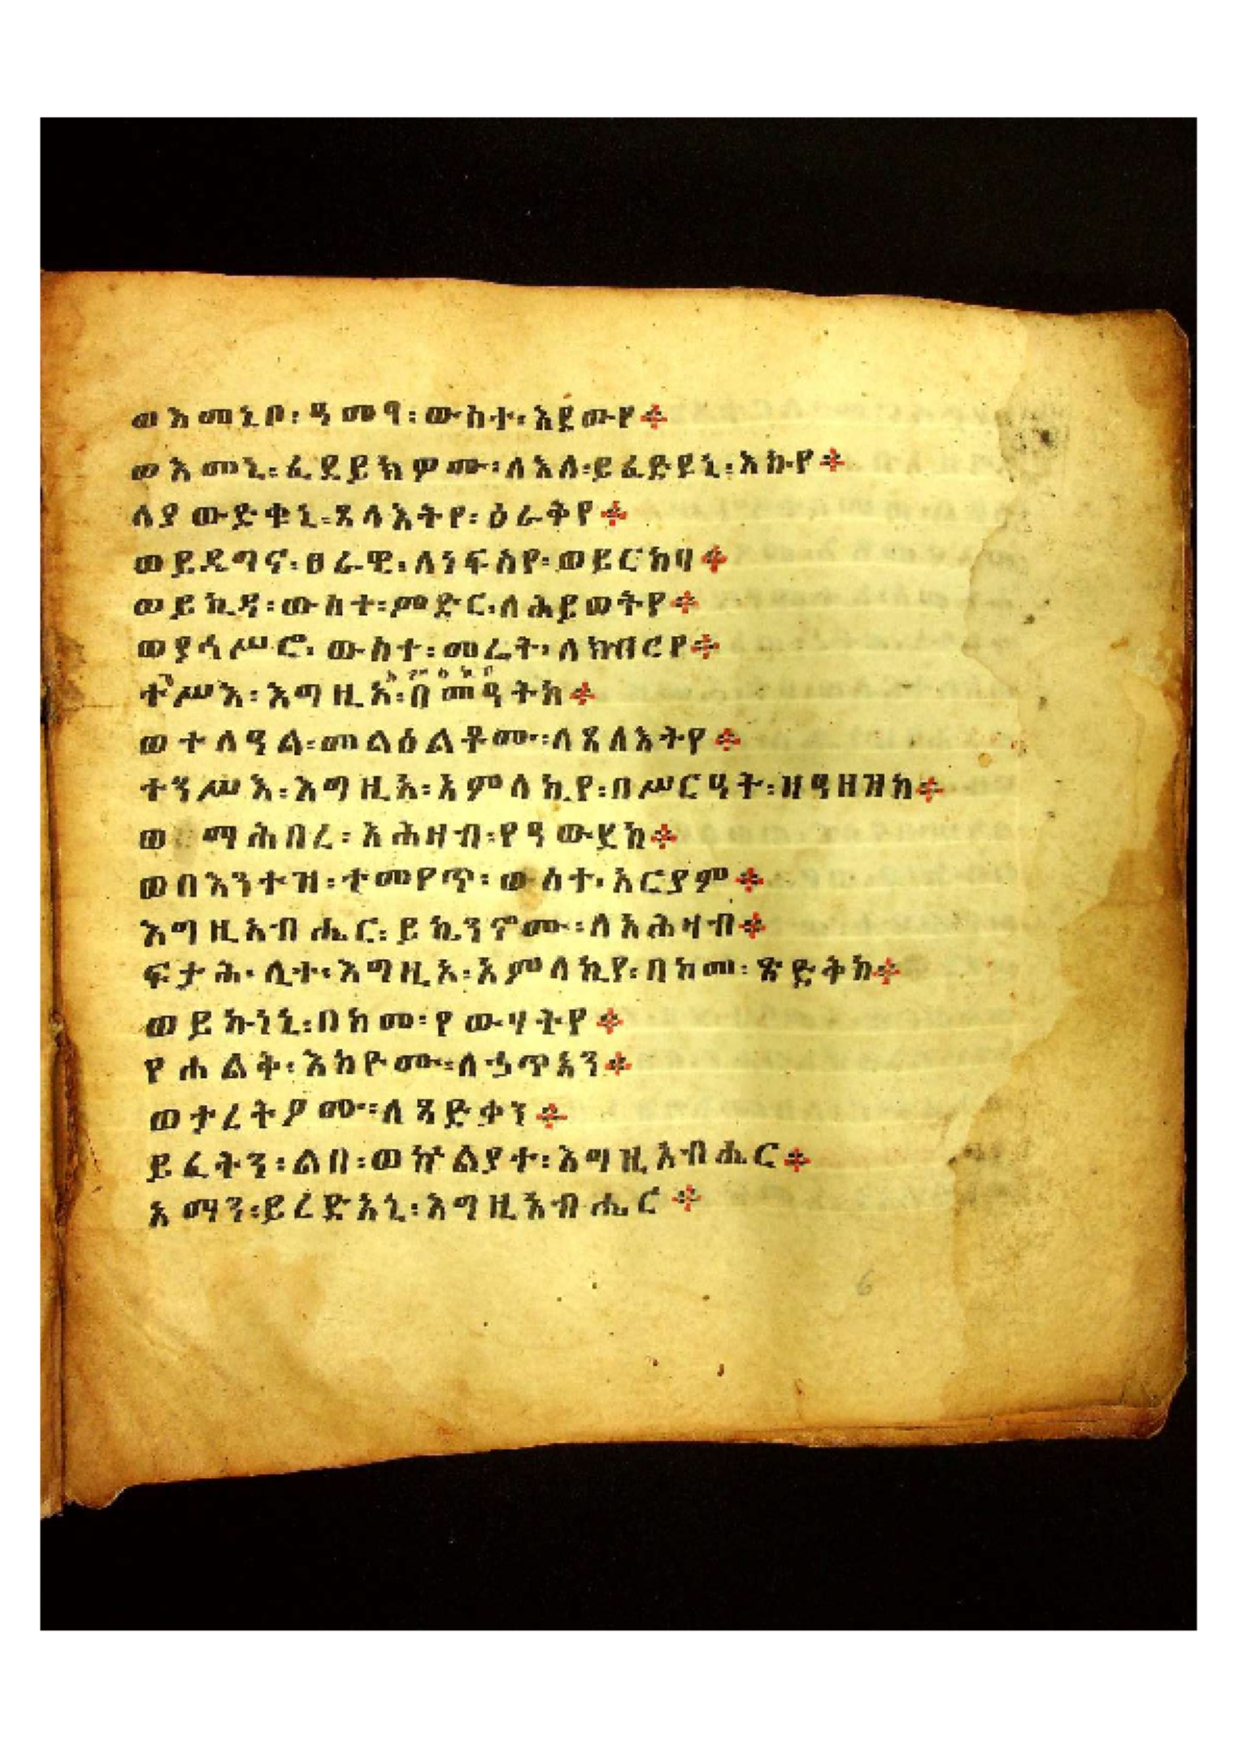 ወእመኒቦ፡ ዓመፃ፡ ውስተ፡ እደውየ፨
ወእመኒ፡ ፈደይክዎሙ፡ ለእለ፡ ይፈድዩኒ፡ እኩየ፨
ለያውድቁኒ፡ ጸላእትየ፡ ዕራቅየ፨
ወይዴግና፡ ፀራዊ፡ ለነፍስየ፡ ወይርከባ፨
ወይኪዳ፡ ውስተ፡ ምድር፡ ለሕይወትየ፨
ወያኅሥሮ፡ ውስተ፡ መሬት፡ ለክብርየ፨
ተንሥእ፡ እግዚአ፡ በመዓትከ፨
ወተለዓል፡ መልዕልቶሙ፡ ለጸላእትየ፨
ተንሥእ፡ እግዚአ፡ አምላኪየ፡ በሥርዓት፡ ዘዓዘዝከ፨
ወማሕበረ፡ አሕዛብ፡ የዓውደከ፨
ወበእንተዝ፡ ተመየጥ፡ ውስተ፡ አርያም፨
እግዚአብሔር፡ ይኴንኖሙ፡ ለአሕዛብ፨
ፍታሕ፡ ሊተ፡ እግዚኦ፡ አምላኪየ፡ በከመ፡ ጽድቅከ፨
ወይኩነኒ፡ በከመ፡ የውሃትየ፨
የሐልቅ፡ እከዮሙ፡ ለኃጥአን፨
ወታረትዖሙ፡ ለጻድቃን፨
ይፈትን፡ ልበ፡ ወኵልያተ፡ እግዚአብሔር፨
አማን፡ ይረድአኒ፡ እግዚአብሔር፨
6